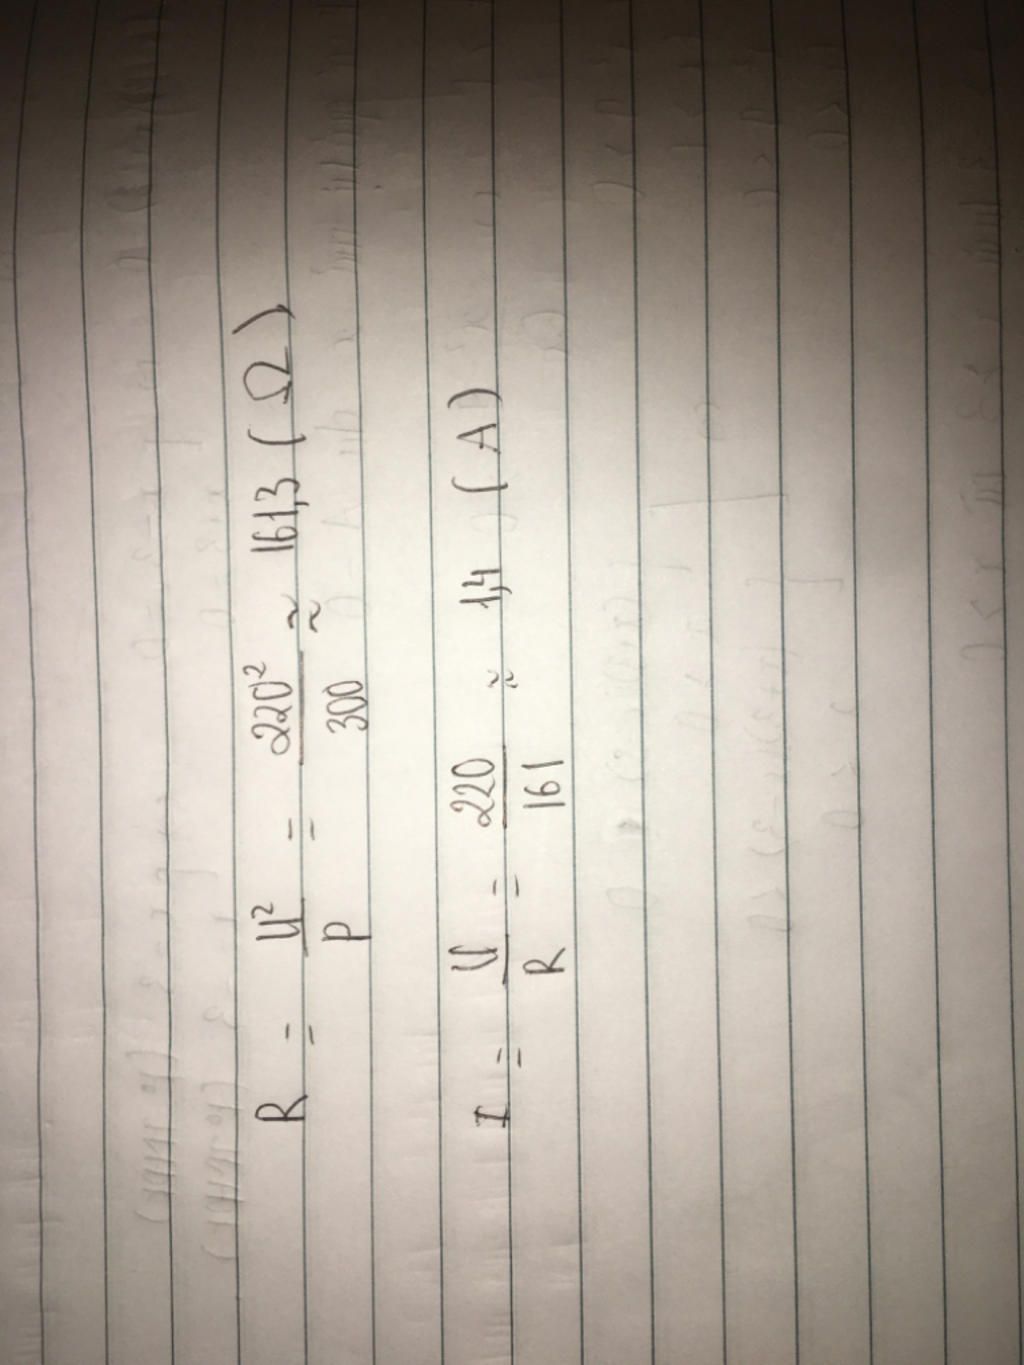 R = U²/P = 220²/300 ≈ 161,3 (Ω)
I = U/R = 220/161 ≈ 1,4 (A)